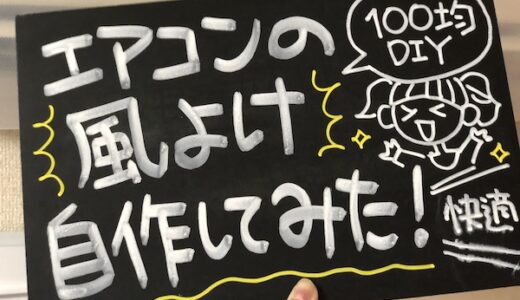 エアコンの
風よけ
自作してみた!
100均
DIY
快適